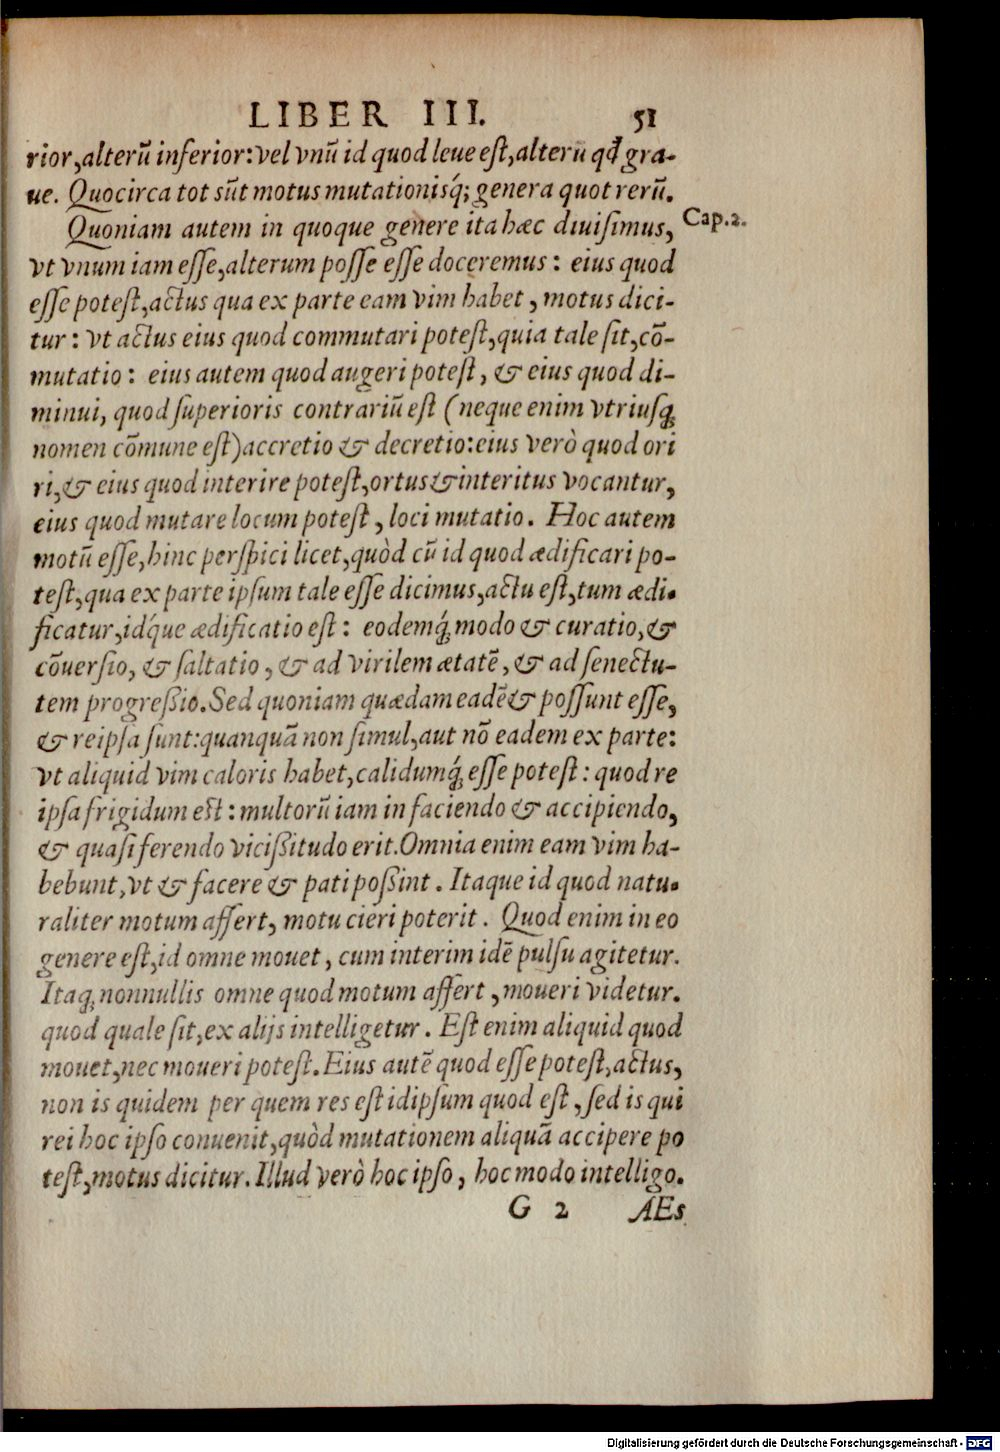 LIBER III. 51
rior, alterũ inferior: vel vnũ id quod leue est, alterũ qđ gra-
ue. Quocirca tot sũt motus mutationisq́; genera quot rerũ.
Quoniam autem in quoque genere ita hæc diuisimus, Cap.2.
vt vnum iam esse, alterum posse esse doceremus: eius quod
esse potest, actus qua ex parte eam vim habet, motus dici-
tur: vt actus eius quod commutari potest, quia tale sit, cõ-
mutatio: eius autem quod augeri potest, & eius quod di-
minui, quod superioris contrariũ est (neque enim vtriusq;
nomen cõmune est) accretio & decretio: eius verò quod ori
ri, & eius quod interire potest, ortus & interitus vocantur,
eius quod mutare locum potest, loci mutatio. Hoc autem
motũ esse, hinc perspici licet, quòd cũ id quod ædificari po-
test, qua ex parte ipsum tale esse dicimus, actu est, tum ædi-
ficatur, id́que ædificatio est: eodemq́; modo & curatio, &
cõuersio, & saltatio, & ad virilem ætatẽ, & ad senectu-
tem progreßio. Sed quoniam quædam eadẽ & possunt esse,
& reipsa sunt: quanquã non simul, aut nõ eadem ex parte:
vt aliquid vim caloris habet, calidumq́; esse potest: quod re
ipsa frigidum est: multorũ iam in faciendo & accipiendo,
& quasi ferendo vicißitudo erit. Omnia enim eam vim ha-
bebunt, vt & facere & pati poßint. Itaque id quod natu-
raliter motum affert, motu cieri poterit. Quod enim in eo
genere est, id omne mouet, cum interim idẽ pulsu agitetur.
Itaq; nonnullis omne quod motum affert, moueri videtur.
quod quale sit, ex alijs intelligetur. Est enim aliquid quod
mouet, nec moueri potest. Eius autẽ quod esse potest, actus,
non is quidem per quem res est idipsum quod est, sed is qui
rei hoc ipso conuenit, quòd mutationem aliquã accipere po
test, motus dicitur. Illud verò hoc ipso, hoc modo intelligo.
G 2 AEs
Digitalisierung gefördert durch die Deutsche Forschungsgemeinschaft - DFG